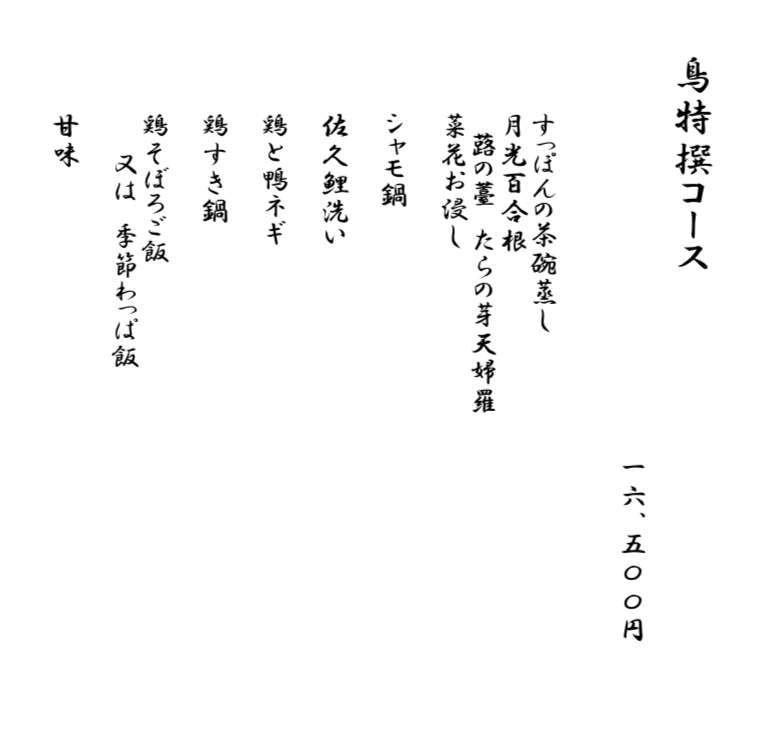 鳥特撰コース
一六、五〇〇円
すっぽんの茶碗蒸し
月光百合根
蕗の薹 たらの芽天婦羅
菜花お浸し
シャモ鍋
佐久鯉洗い
鶏と鴨ネギ
鶏すき鍋
鶏そぼろご飯
又は 季節わっぱ飯
甘味